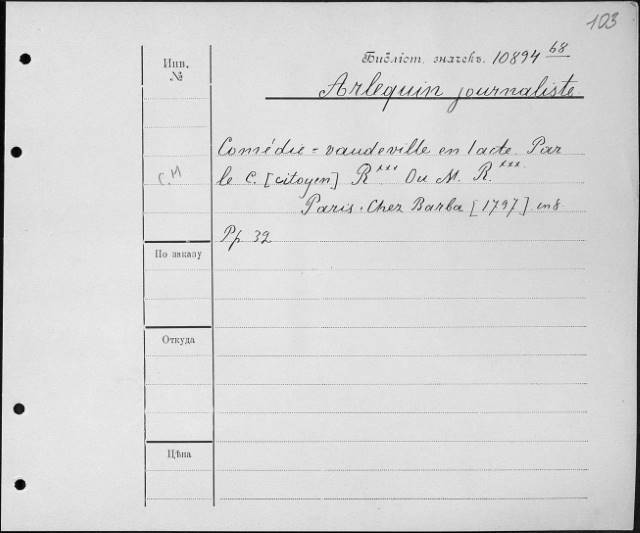 103
Инв. №
Библіот. значекъ. 10894 68
Arlequin journaliste.
Comédie = vaudeville en 1 acte. Par
le C. [citoyen] R*** Ou M. R.***
Paris. Chez Barba [1797] in 8.
Pp 32
По заказу
Откуда
Цѣна